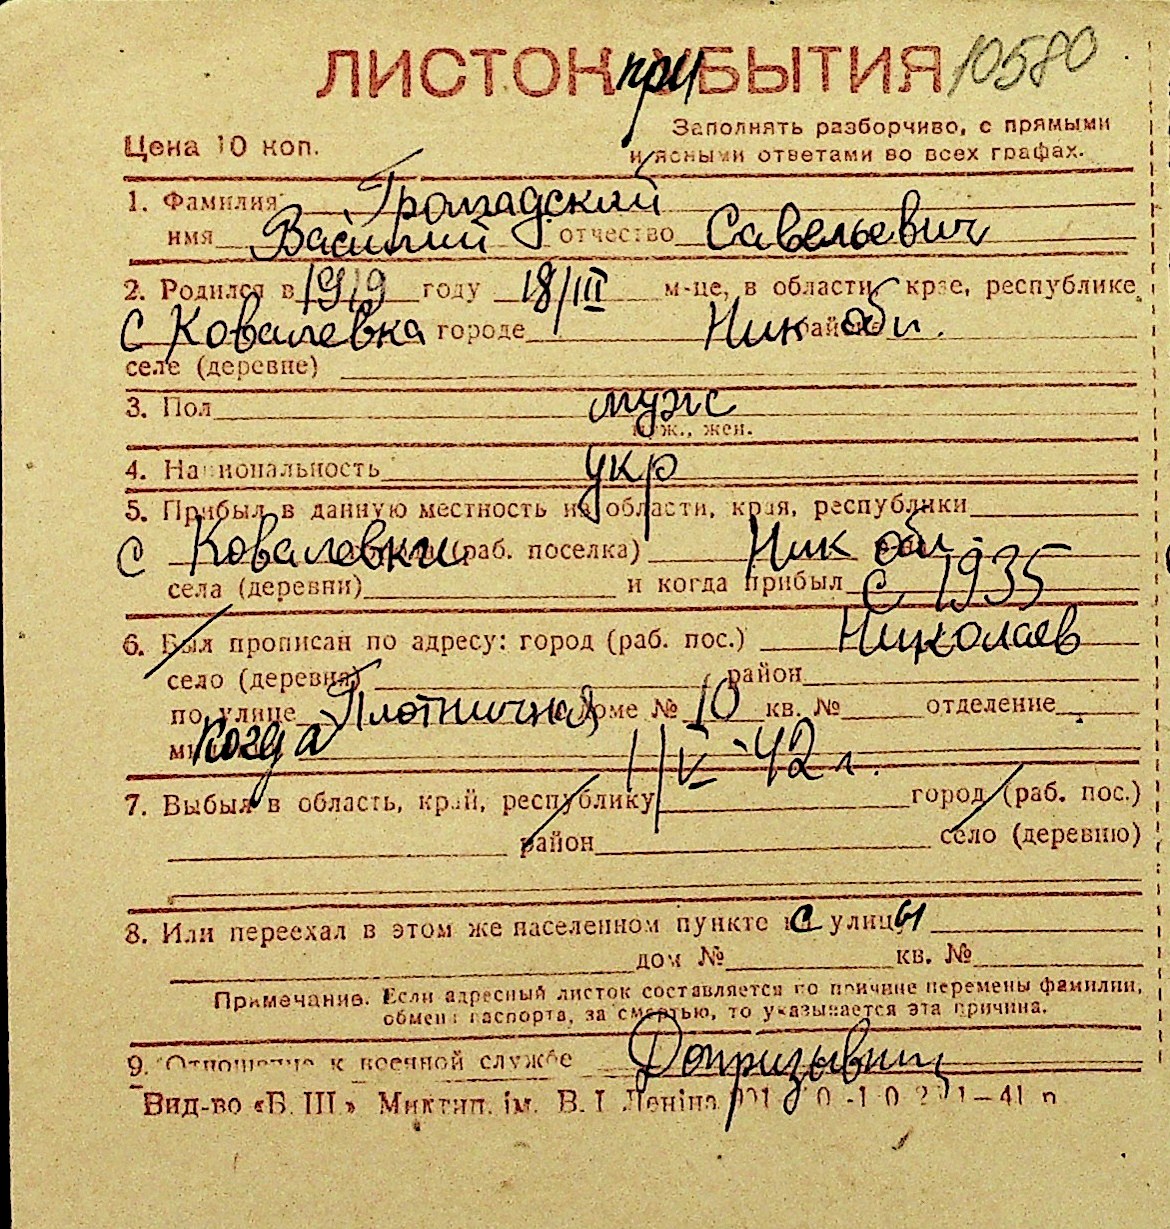 ЛИСТОК при УБЫТИЯ 10580
Цена 10 коп.
Заполнять разборчиво, с прямыми
и ясными ответами во всех графах.
1. Фамилия Громадский
имя Василий отчество Савельевич
2. Родился в 1919 году 18/III м-це, в области, крае, республике
с Ковалевка городе Ник обл. районе
селе (деревне)
3. Пол муж
муж., жен.
4. Национальность укр
5. Прибыл в данную местность из области, края, республики
с Ковалевки города (раб. поселка) Ник обл.
села (деревни) и когда прибыл с 1935
6. Был прописан по адресу: город (раб. пос.) Николаев
село (деревня) район
по улице Плотничная в доме № 10 кв. № отделение
Когда 1/V-42 г.
7. Выбыл в область, край, республику город (раб. пос.)
район село (деревню)
8. Или переехал в этом же населенном пункте с улицы
дом № кв. №
Примечание. Если адресный листок составляется по причине перемены фамилии,
обмена паспорта, за смертью, то указывается эта причина.
9. Отношение к военной службе Допризывник
Вид-во «Б. Ш.» Миктип. ім. В. І Леніна